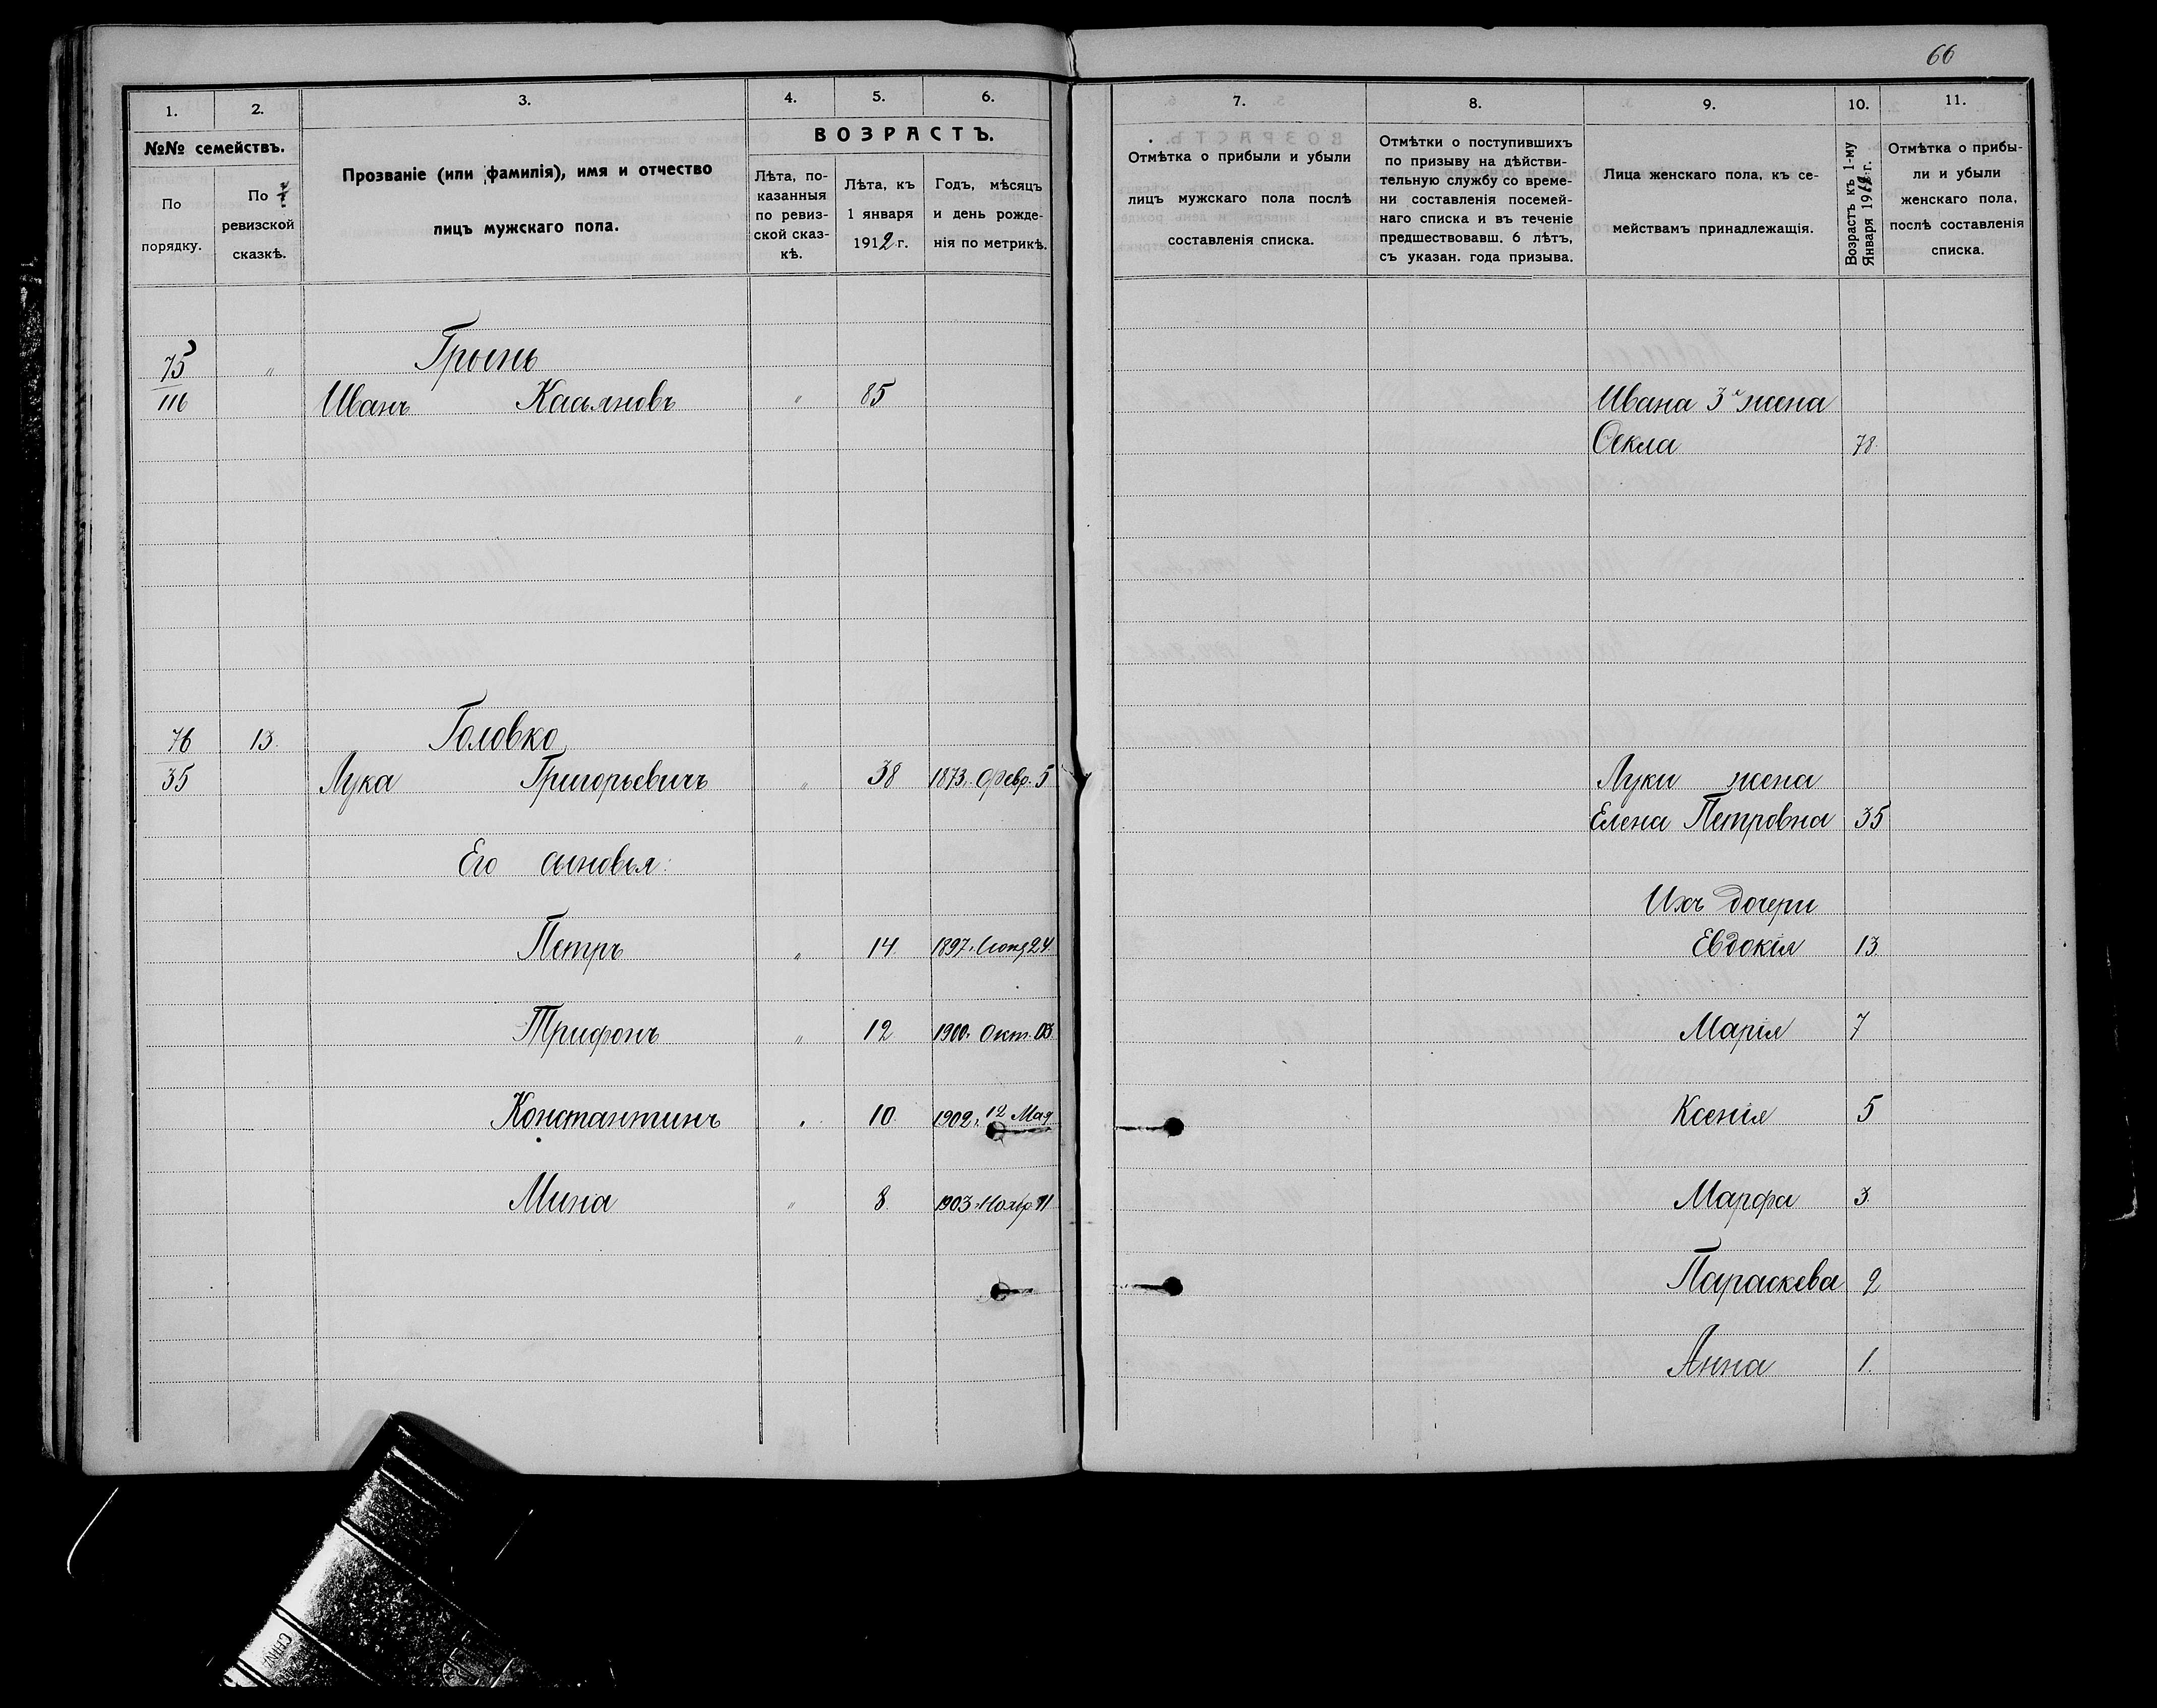 66
1.
2.
3.
4.
5.
6.
№№ семействъ.
По порядку.
По ревизской сказкѣ.
Прозваніе (или фамилія), имя и отчество
лицъ мужскаго пола.
ВОЗРАСТЪ.
Лѣта, по-
казанныя
по ревиз-
ской сказ-
кѣ.
Лѣта, къ
1 января
1912 г.
Годъ, мѣсяцъ
и день рожде-
нія по метрикѣ.
75 " Грынь
116 Иванъ " 85
76 13. Головко
35 Лука Григорьевичъ " 38 1873. Февр. 5
Его сыновья:
Петръ " 14. 1897. 24.
Трифонъ " 12 1900. Окт.
Константинъ " 10. 1902. 12 Мая
Мина " 8. 1903. Нояб. 11
7.
8.
9.
10.
11.
Отмѣтка о прибыли и убыли
лицъ мужскаго пола послѣ
составленія списка.
Отмѣтки о поступившихъ
по призыву на дѣйстви-
тельную службу со време-
ни составленія посемей-
наго списка и въ теченіе
предшествовавш. 6 лѣтъ,
съ указан. года призыва.
Лица женскаго пола, къ се-
мействамъ принадлежащія.
Возрастъ къ 1-му
Января 1912 г.
Отмѣтка о прибы-
ли и убыли
женскаго пола,
послѣ составленія
списка.
Ивана 3я жена
Ѳекла 78.
Луки жена
Елена Петровна 35
Ихъ дочери
Евдокія 13.
Марія 7
Ксенія 5
Марфа 3.
Параскева 2
Анна 1.